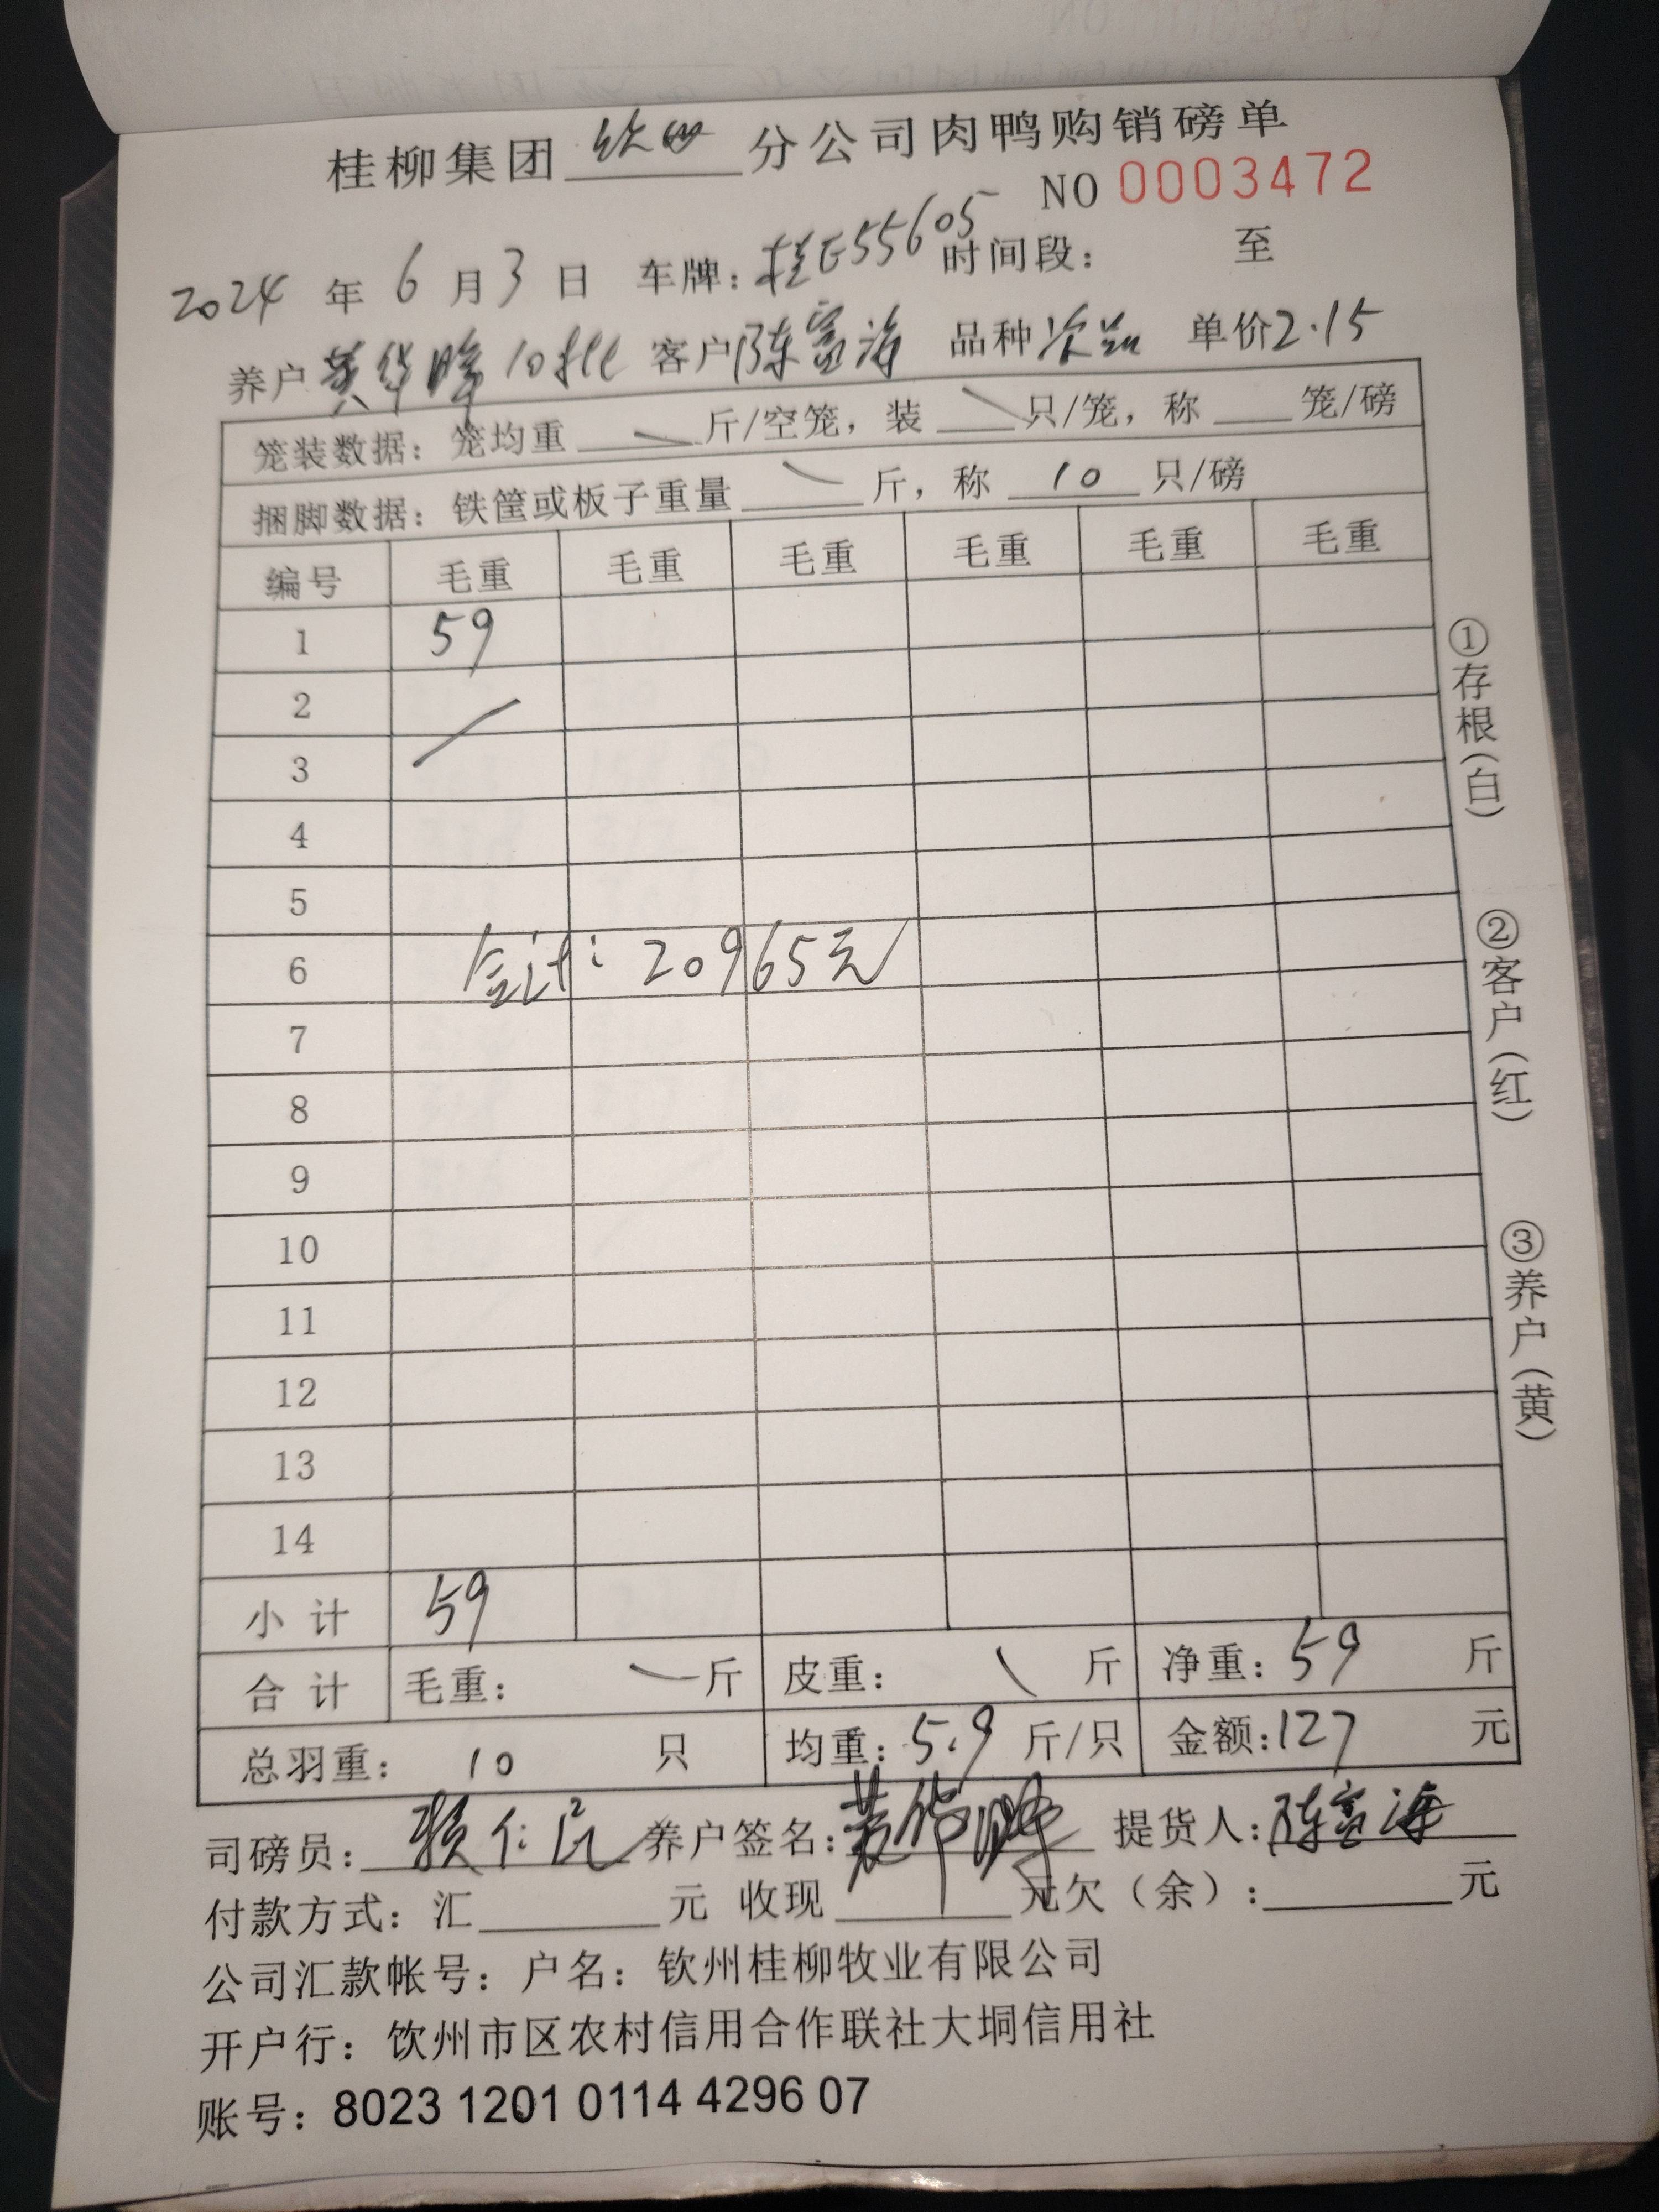 桂柳集团 钦州 分公司肉鸭购销磅单
NO 0003472
2024 年 6 月 3 日 车牌：桂E55605 时间段： 至
养户 黄华 10批 客户 陈富海 品种 次品 单价 2.15
笼装数据：笼均重 斤/空笼，装 只/笼，称 笼/磅
捆脚数据：铁筐或板子重量 斤，称 10 只/磅
编号 毛重 毛重 毛重 毛重 毛重 毛重
1 59
2
3
4
5
6 合计：20965元
7
8
9
10
11
12
13
14
小 计 59
合 计 毛重： 斤 皮重： 斤 净重：59 斤
总羽重： 10 只 均重：5.9 斤/只 金额：127 元
司磅员：赖仁 养户签名：黄华 提货人：陈富海
付款方式：汇 元 收现 元欠（余）： 元
公司汇款帐号：户名：钦州桂柳牧业有限公司
开户行：钦州市区农村信用合作联社大垌信用社
账号：8023 1201 0114 4296 07
①存根（白）
②客户（红）
③养户（黄）